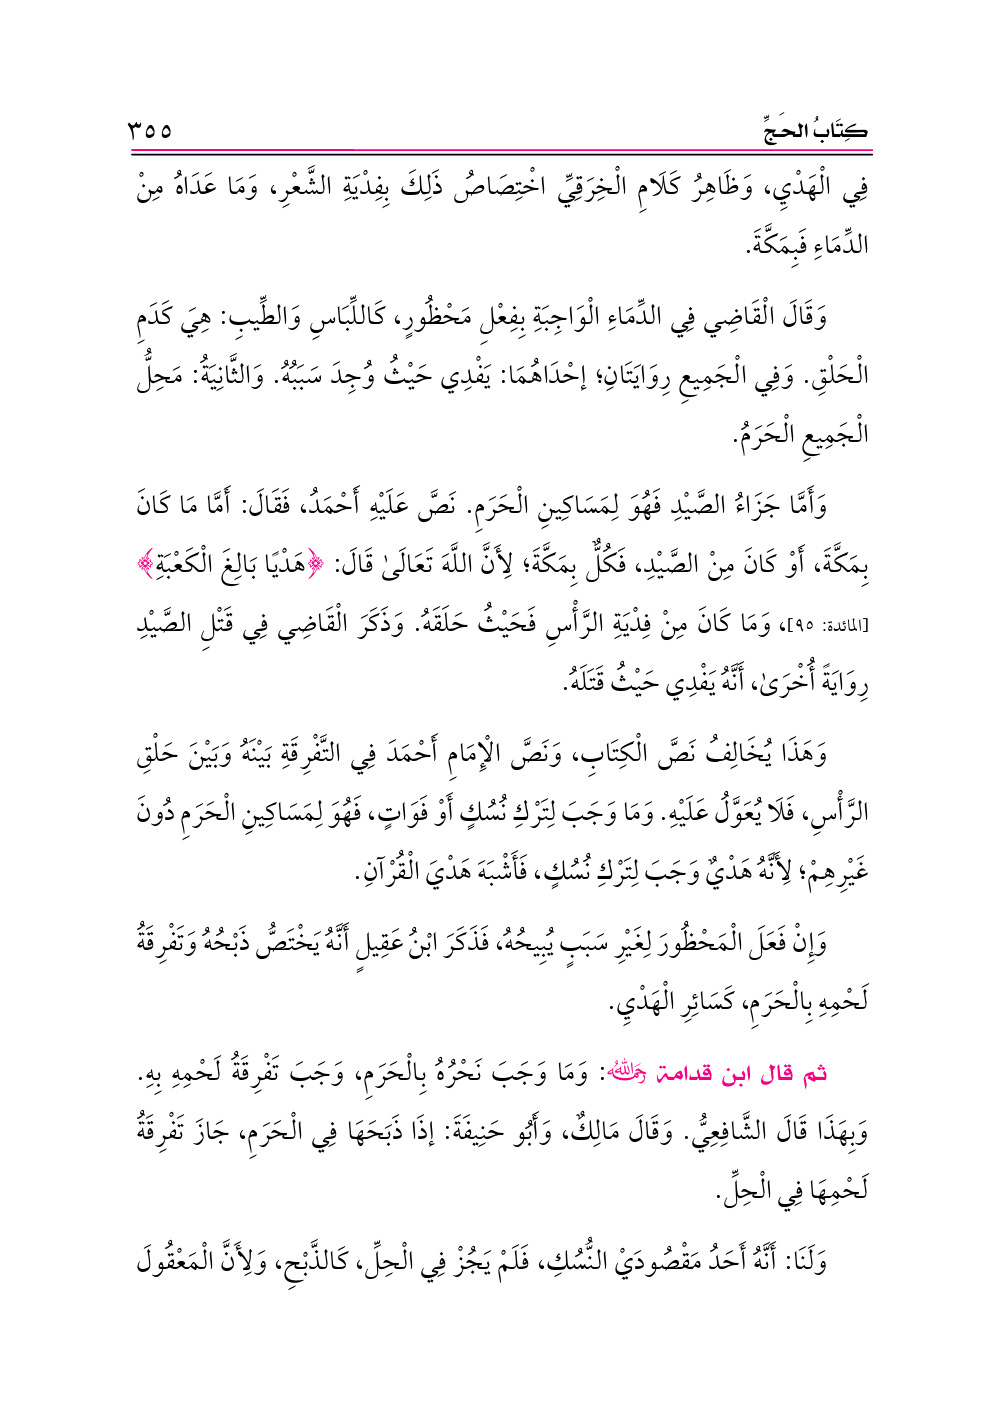 كِتَابُ الحَجِّ ٣٥٥
فِي الْهَدْيِ، وَظَاهِرُ كَلَامِ الْخِرَقِيِّ اخْتِصَاصُ ذَلِكَ بِفِدْيَةِ الشَّعْرِ، وَمَا عَدَاهُ مِنْ
الدِّمَاءِ فَبِمَكَّةَ.
وَقَالَ الْقَاضِي فِي الدِّمَاءِ الْوَاجِبَةِ بِفِعْلِ مَحْظُورٍ، كَاللِّبَاسِ وَالطِّيبِ: هِيَ كَدَمِ
الْحَلْقِ. وَفِي الْجَمِيعِ رِوَايَتَانِ؛ إحْدَاهُمَا: يَفْدِي حَيْثُ وُجِدَ سَبَبُهُ. وَالثَّانِيَةُ: مَحِلُّ
الْجَمِيعِ الْحَرَمُ.
وَأَمَّا جَزَاءُ الصَّيْدِ فَهُوَ لِمَسَاكِينِ الْحَرَمِ. نَصَّ عَلَيْهِ أَحْمَدُ، فَقَالَ: أَمَّا مَا كَانَ
بِمَكَّةَ، أَوْ كَانَ مِنْ الصَّيْدِ، فَكُلٌّ بِمَكَّةَ؛ لِأَنَّ اللَّهَ تَعَالَىٰ قَالَ: ﴿هَدْيًا بَالِغَ الْكَعْبَةِ﴾
[المائدة: ٩٥]، وَمَا كَانَ مِنْ فِدْيَةِ الرَّأْسِ فَحَيْثُ حَلَقَهُ. وَذَكَرَ الْقَاضِي فِي قَتْلِ الصَّيْدِ
رِوَايَةً أُخْرَىٰ، أَنَّهُ يَفْدِي حَيْثُ قَتَلَهُ.
وَهَذَا يُخَالِفُ نَصَّ الْكِتَابِ، وَنَصَّ الْإِمَامِ أَحْمَدَ فِي التَّفْرِقَةِ بَيْنَهُ وَبَيْنَ حَلْقِ
الرَّأْسِ، فَلَا يُعَوَّلُ عَلَيْهِ. وَمَا وَجَبَ لِتَرْكِ نُسُكٍ أَوْ فَوَاتٍ، فَهُوَ لِمَسَاكِينِ الْحَرَمِ دُونَ
غَيْرِهِمْ؛ لِأَنَّهُ هَدْيٌ وَجَبَ لِتَرْكِ نُسُكٍ، فَأَشْبَهَ هَدْيَ الْقُرْآنِ.
وَإِنْ فَعَلَ الْمَحْظُورَ لِغَيْرِ سَبَبٍ يُبِيحُهُ، فَذَكَرَ ابْنُ عَقِيلٍ أَنَّهُ يَخْتَصُّ ذَبْحُهُ وَتَفْرِقَةُ
لَحْمِهِ بِالْحَرَمِ، كَسَائِرِ الْهَدْيِ.
ثم قال ابن قدامة رحمه الله: وَمَا وَجَبَ نَحْرُهُ بِالْحَرَمِ، وَجَبَ تَفْرِقَةُ لَحْمِهِ بِهِ.
وَبِهَذَا قَالَ الشَّافِعِيُّ. وَقَالَ مَالِكٌ، وَأَبُو حَنِيفَةَ: إذَا ذَبَحَهَا فِي الْحَرَمِ، جَازَ تَفْرِقَةُ
لَحْمِهَا فِي الْحِلِّ.
وَلَنَا: أَنَّهُ أَحَدُ مَقْصُودَيْ النُّسُكِ، فَلَمْ يَجُزْ فِي الْحِلِّ، كَالذَّبْحِ، وَلِأَنَّ الْمَعْقُولَ